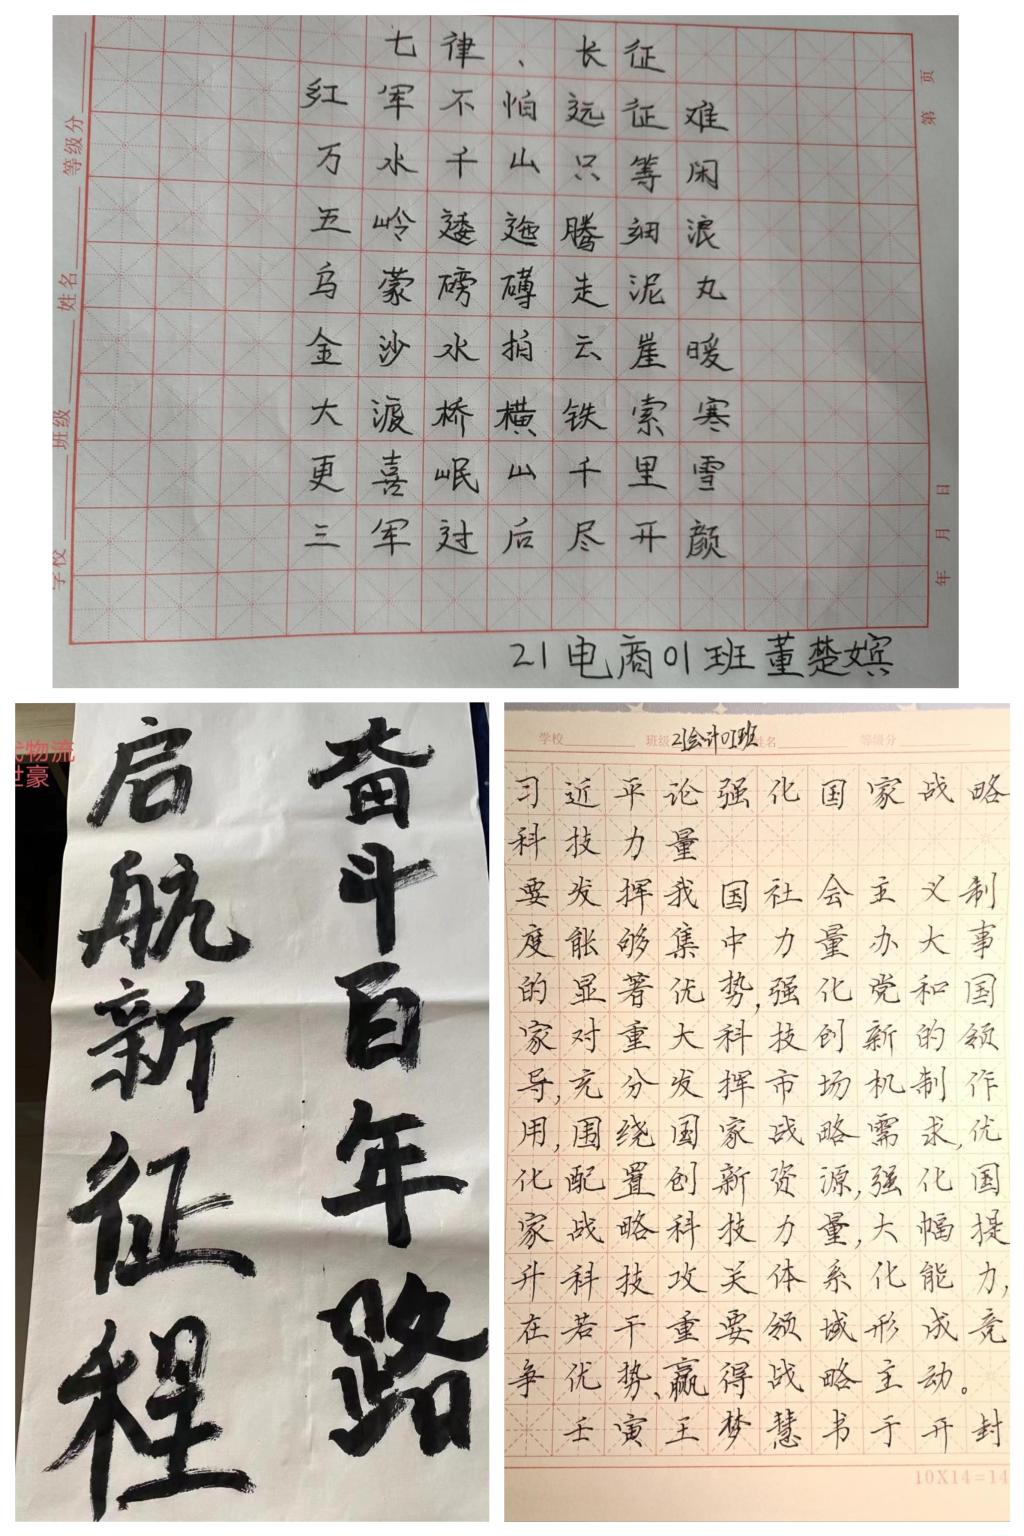 七律、长征
红军不怕远征难
万水千山只等闲
五岭逶迤腾细浪
乌蒙磅礴走泥丸
金沙水拍云崖暖
大渡桥横铁索寒
更喜岷山千里雪
三军过后尽开颜
21电商01班董楚嫔
学校 班级 姓名 等级分
第 页
年 月 日
奋斗百年路
启航新征程
物流
世豪
学校 班级 21会计01班 姓名 等级分
习近平论强化国家战略
科技力量
要发挥我国社会主义制
度能够集中力量办大事
的显著优势,强化党和国
家对重大科技创新的领
导,充分发挥市场机制作
用,围绕国家战略需求,优
化配置创新资源,强化国
家战略科技力量,大幅提
升科技攻关体系化能力,
在若干重要领域形成竞
争优势、赢得战略主动。
壬寅王梦慧书于开封
10X14=14